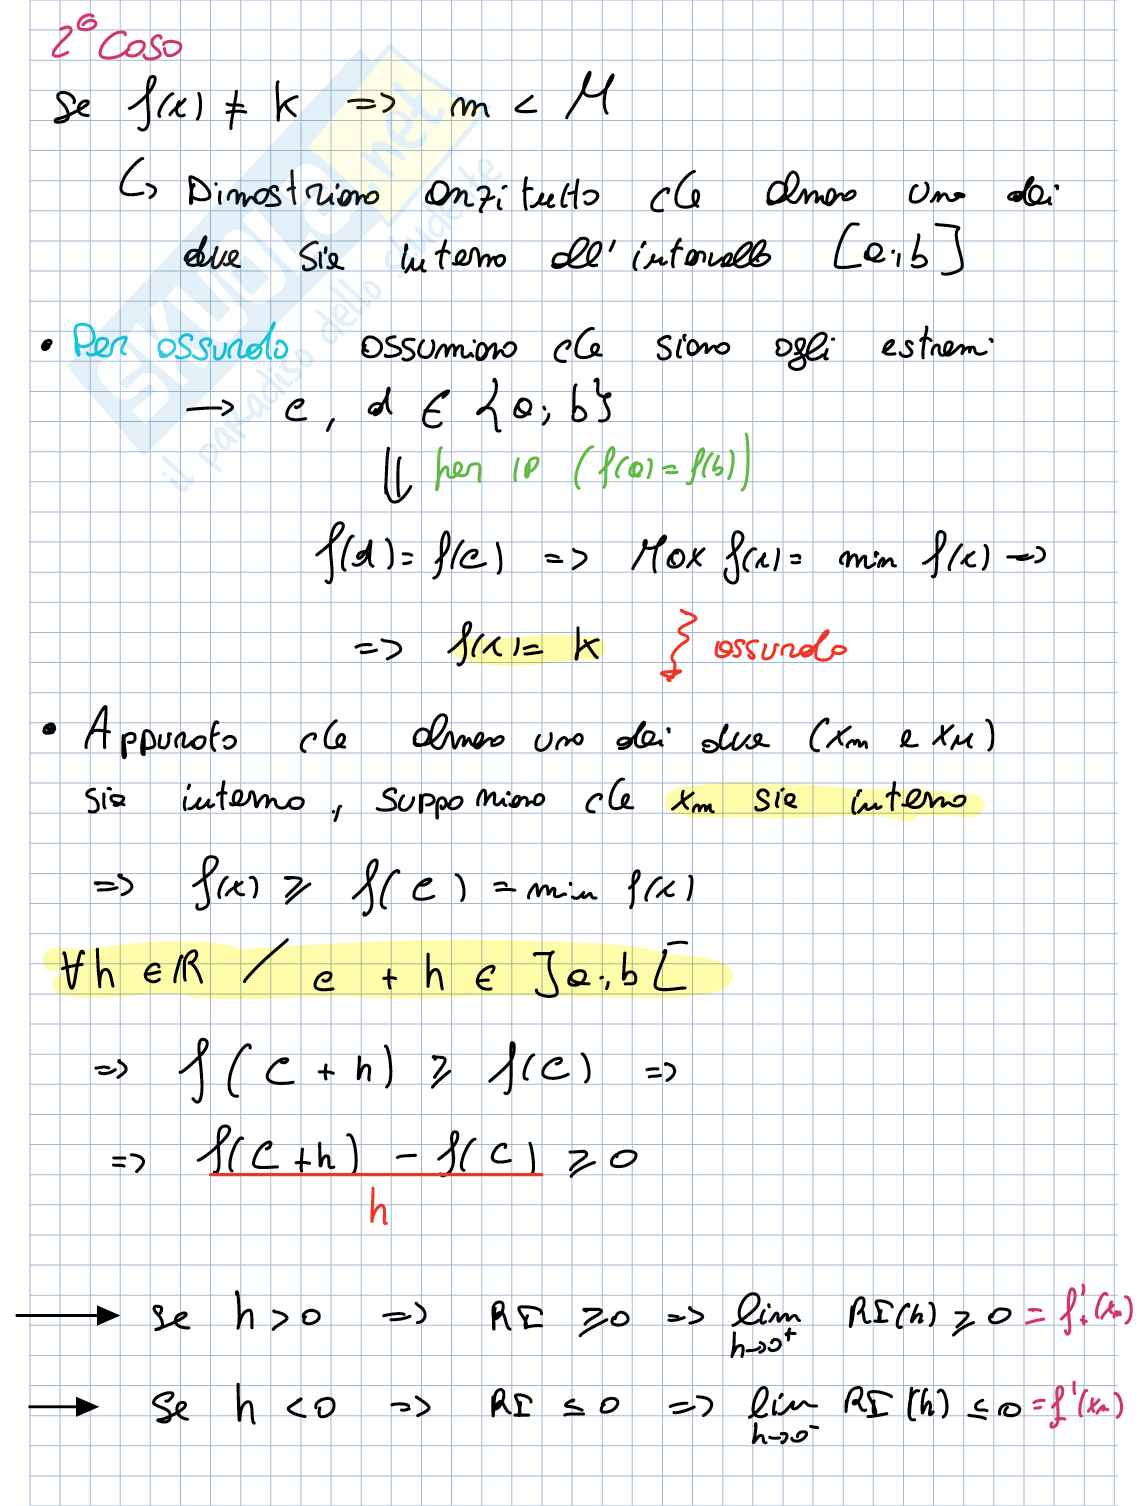 2° Caso
se f(x) ≠ k => m < M
↳ Dimostriamo anzitutto che almeno uno dei
due sia interno all'intervallo [a;b]
• Per assurdo assumiamo che siano agli estremi
→ c, d ∈ {a; b}
⇓ per IP (f(a) = f(b))
f(d) = f(c) => Max f(x) = min f(x) =>
=> f(x) = k } assurdo
• Appurato che almeno uno dei due (xm e xM)
sia interno, supponiamo che xm sia interno
=> f(x) ≥ f(c) = min f(x)
∀h ∈ ℝ / c + h ∈ ]a;b[
=> f(c + h) ≥ f(c) =>
=> f(c+h) - f(c) ≥ 0
h
→ se h > 0 => RI ≥ 0 => lim h→0⁺ RI(h) ≥ 0 = f'₊(xm)
→ se h < 0 => RI ≤ 0 => lim h→0⁻ RI(h) ≤ 0 = f'(xm)
SKUOLA.net
il paradiso dello studente